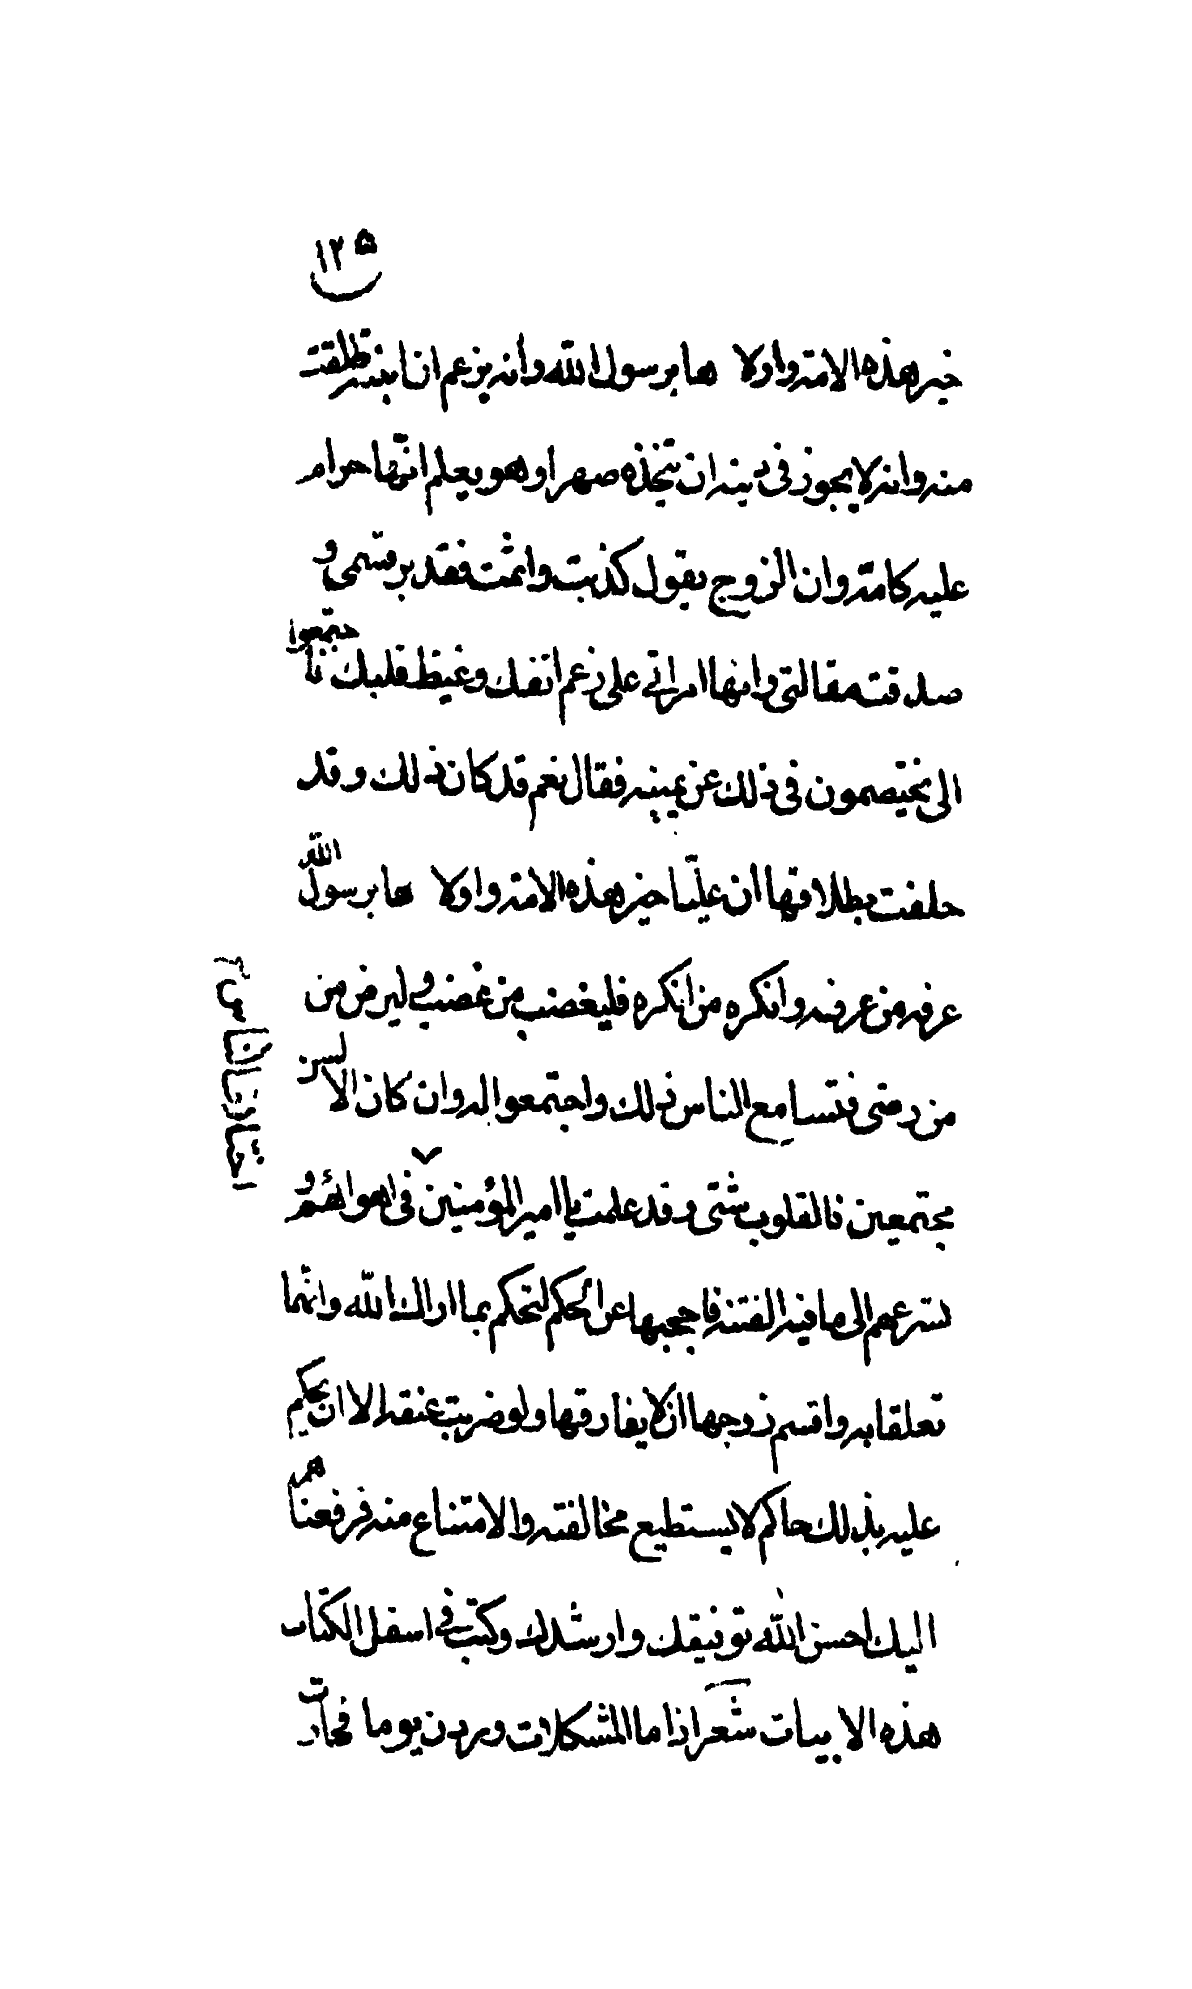 ١٢٥
خير هذه الامة واولاها برسول الله وانه يزعم ان ابنته طلقت
منه وانه لا يجوز في دينه ان تتخذه صهرا وهو يعلم انها حرام
عليه كامه وان الزوج يقول كذبت واثمت فقد بر قسمي و
صدقت مقالتي وانها امراتي على زعم انفك وغيظ قلبك فاجتمعوا
الى يختصمون في ذلك عن يمينه فقال نعم قد كان ذلك وقد
حلفت بطلاقها ان عليا خير هذه الامة واولاها برسول الله
عرفه من عرفه وانكره من انكره فليغضب من غضب وليرض من
من رضى فتسامع الناس ذلك واجتمعوا له وان كان الالسن
مجتمعين فالقلوب شتى وقد علمت يا امير المؤمنين في اهوائهم و
تسرعهم الى ما فيه الفتنة فاحجبها عن الحكم لتحكم بما اراك الله وانما
تعلقا به واقسم زوجها ان لا يفارقها ولو ضربت عنقه الا ان يحكم
عليه بذلك حاكم لا يستطيع مخالفته والامتناع منه فرفعناهم
اليك احسن الله توفيقك وارشدك وكتب في اسفل الكتاب
هذه الابيات شعر اذا ما المشكلات وردن يوما فحارت
اختلاف الناس